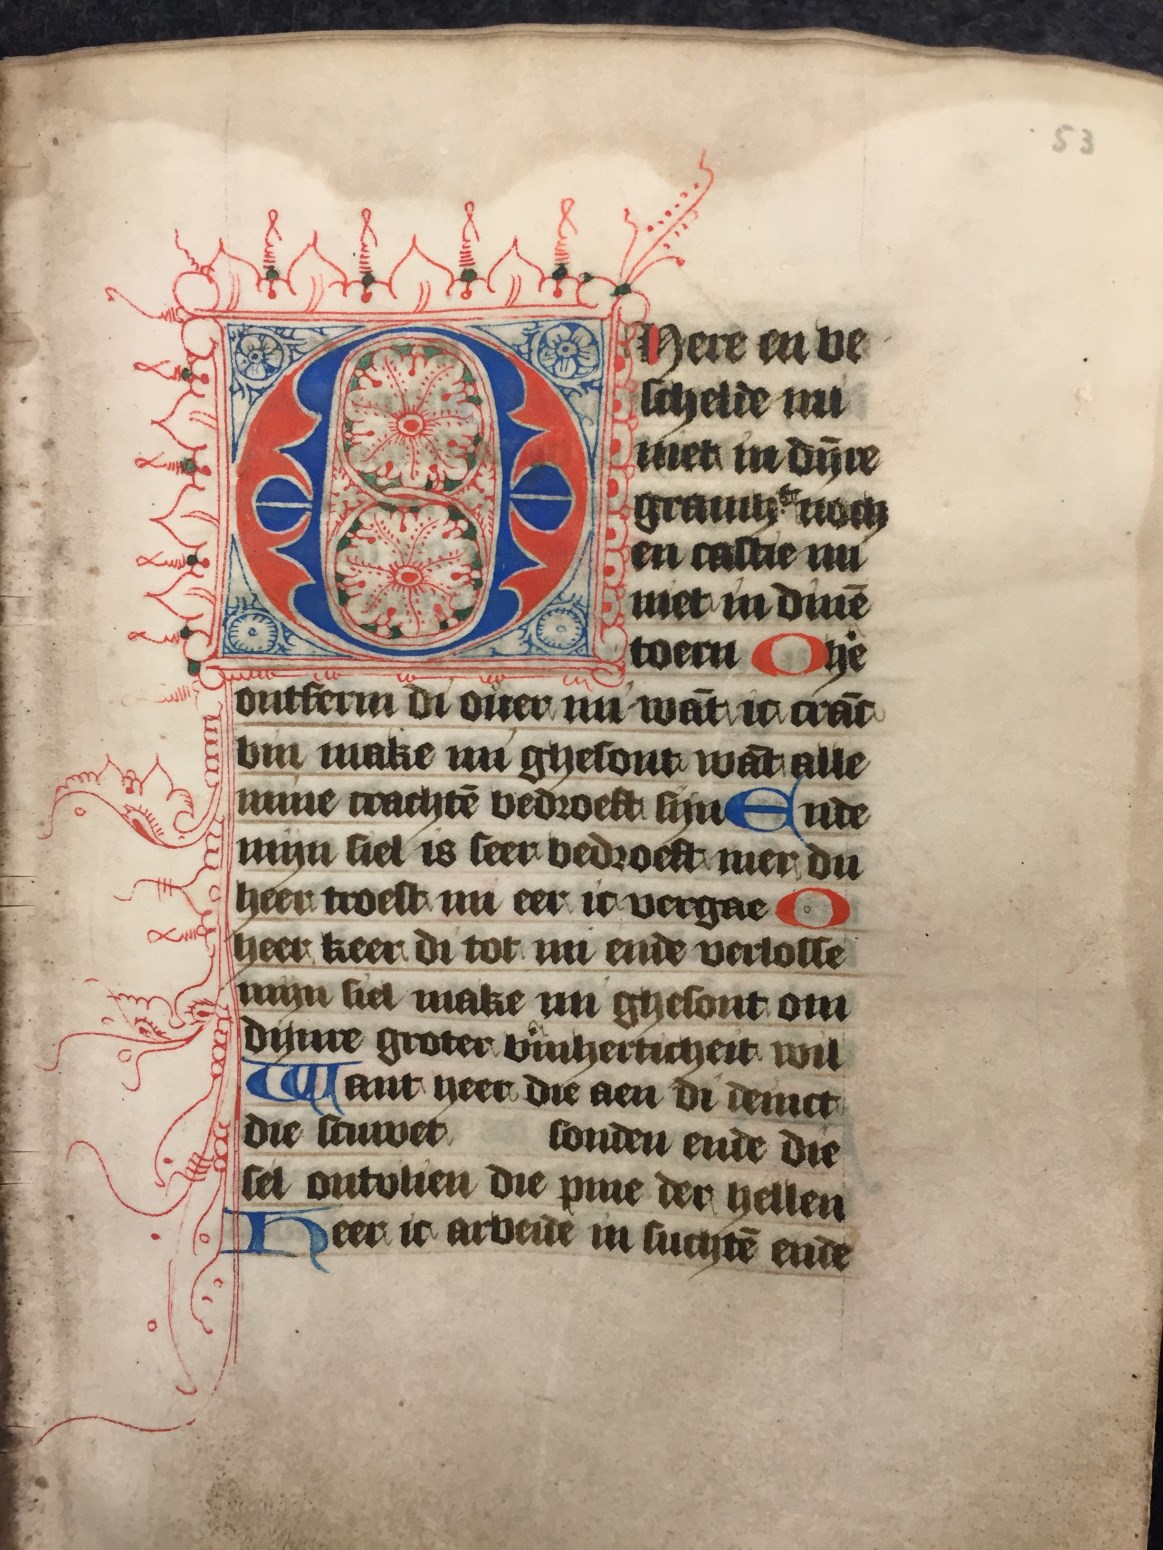 53
O Here en be
schelde mi
niet in dijnre
gramh't noch
en castie mi
niet in dinē
toern O he
ontferm di over mi wāt ic crāc
bin make mi ghesont wāt alle
mine crachtē bedroeft sijn Ende
mijn siel is seer bedroeft mer du
heer troest mi eer ic vergae O
heer keer di tot mi ende verlosse
mijn siel make mi ghesont om
dijnre groter bmherticheit wil
Want heer die aen di denct
die scuwet sonden ende die
sel ontvlien die pine der hellen
Heer ic arbeide in suchtē ende